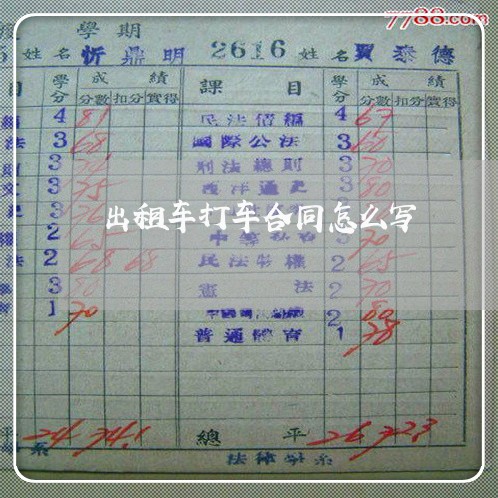 7788.com
學期
姓名 忻鼎明 2616 姓名 賈泰德
目 學分 成績 課目 學分 成績
分數 扣分 實得 分數 扣分 實得
4 81 民法債編 4 67
法 3 68 國際公法 3 60
3 刑法總則 3 70
3 75 西洋通史 3 80
3
出租车打车合同怎么写
2 3 70
法 2 68 68 民法物權 2 65
3 80 憲法 2 70
1 70 2 80
普通體育 1 78
平 24 74.1 總平 26 72.3
系 法律學系